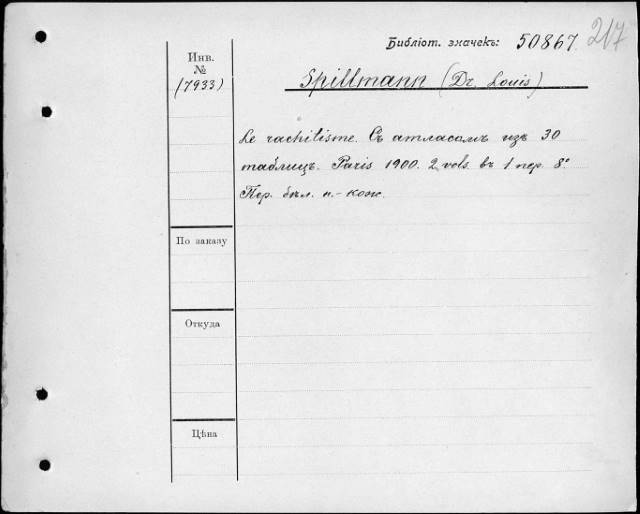 Библіот. значекъ: 50867. 217
Инв.
№
(7933)
Spillmann (Dr. Louis)
Le rachitisme. Съ атласомъ изъ 30
таблицъ. Paris 1900. 2 vols. въ 1 пер. 8°
Пер. бѣл. п.-кож.
По заказу
Откуда
Цѣна